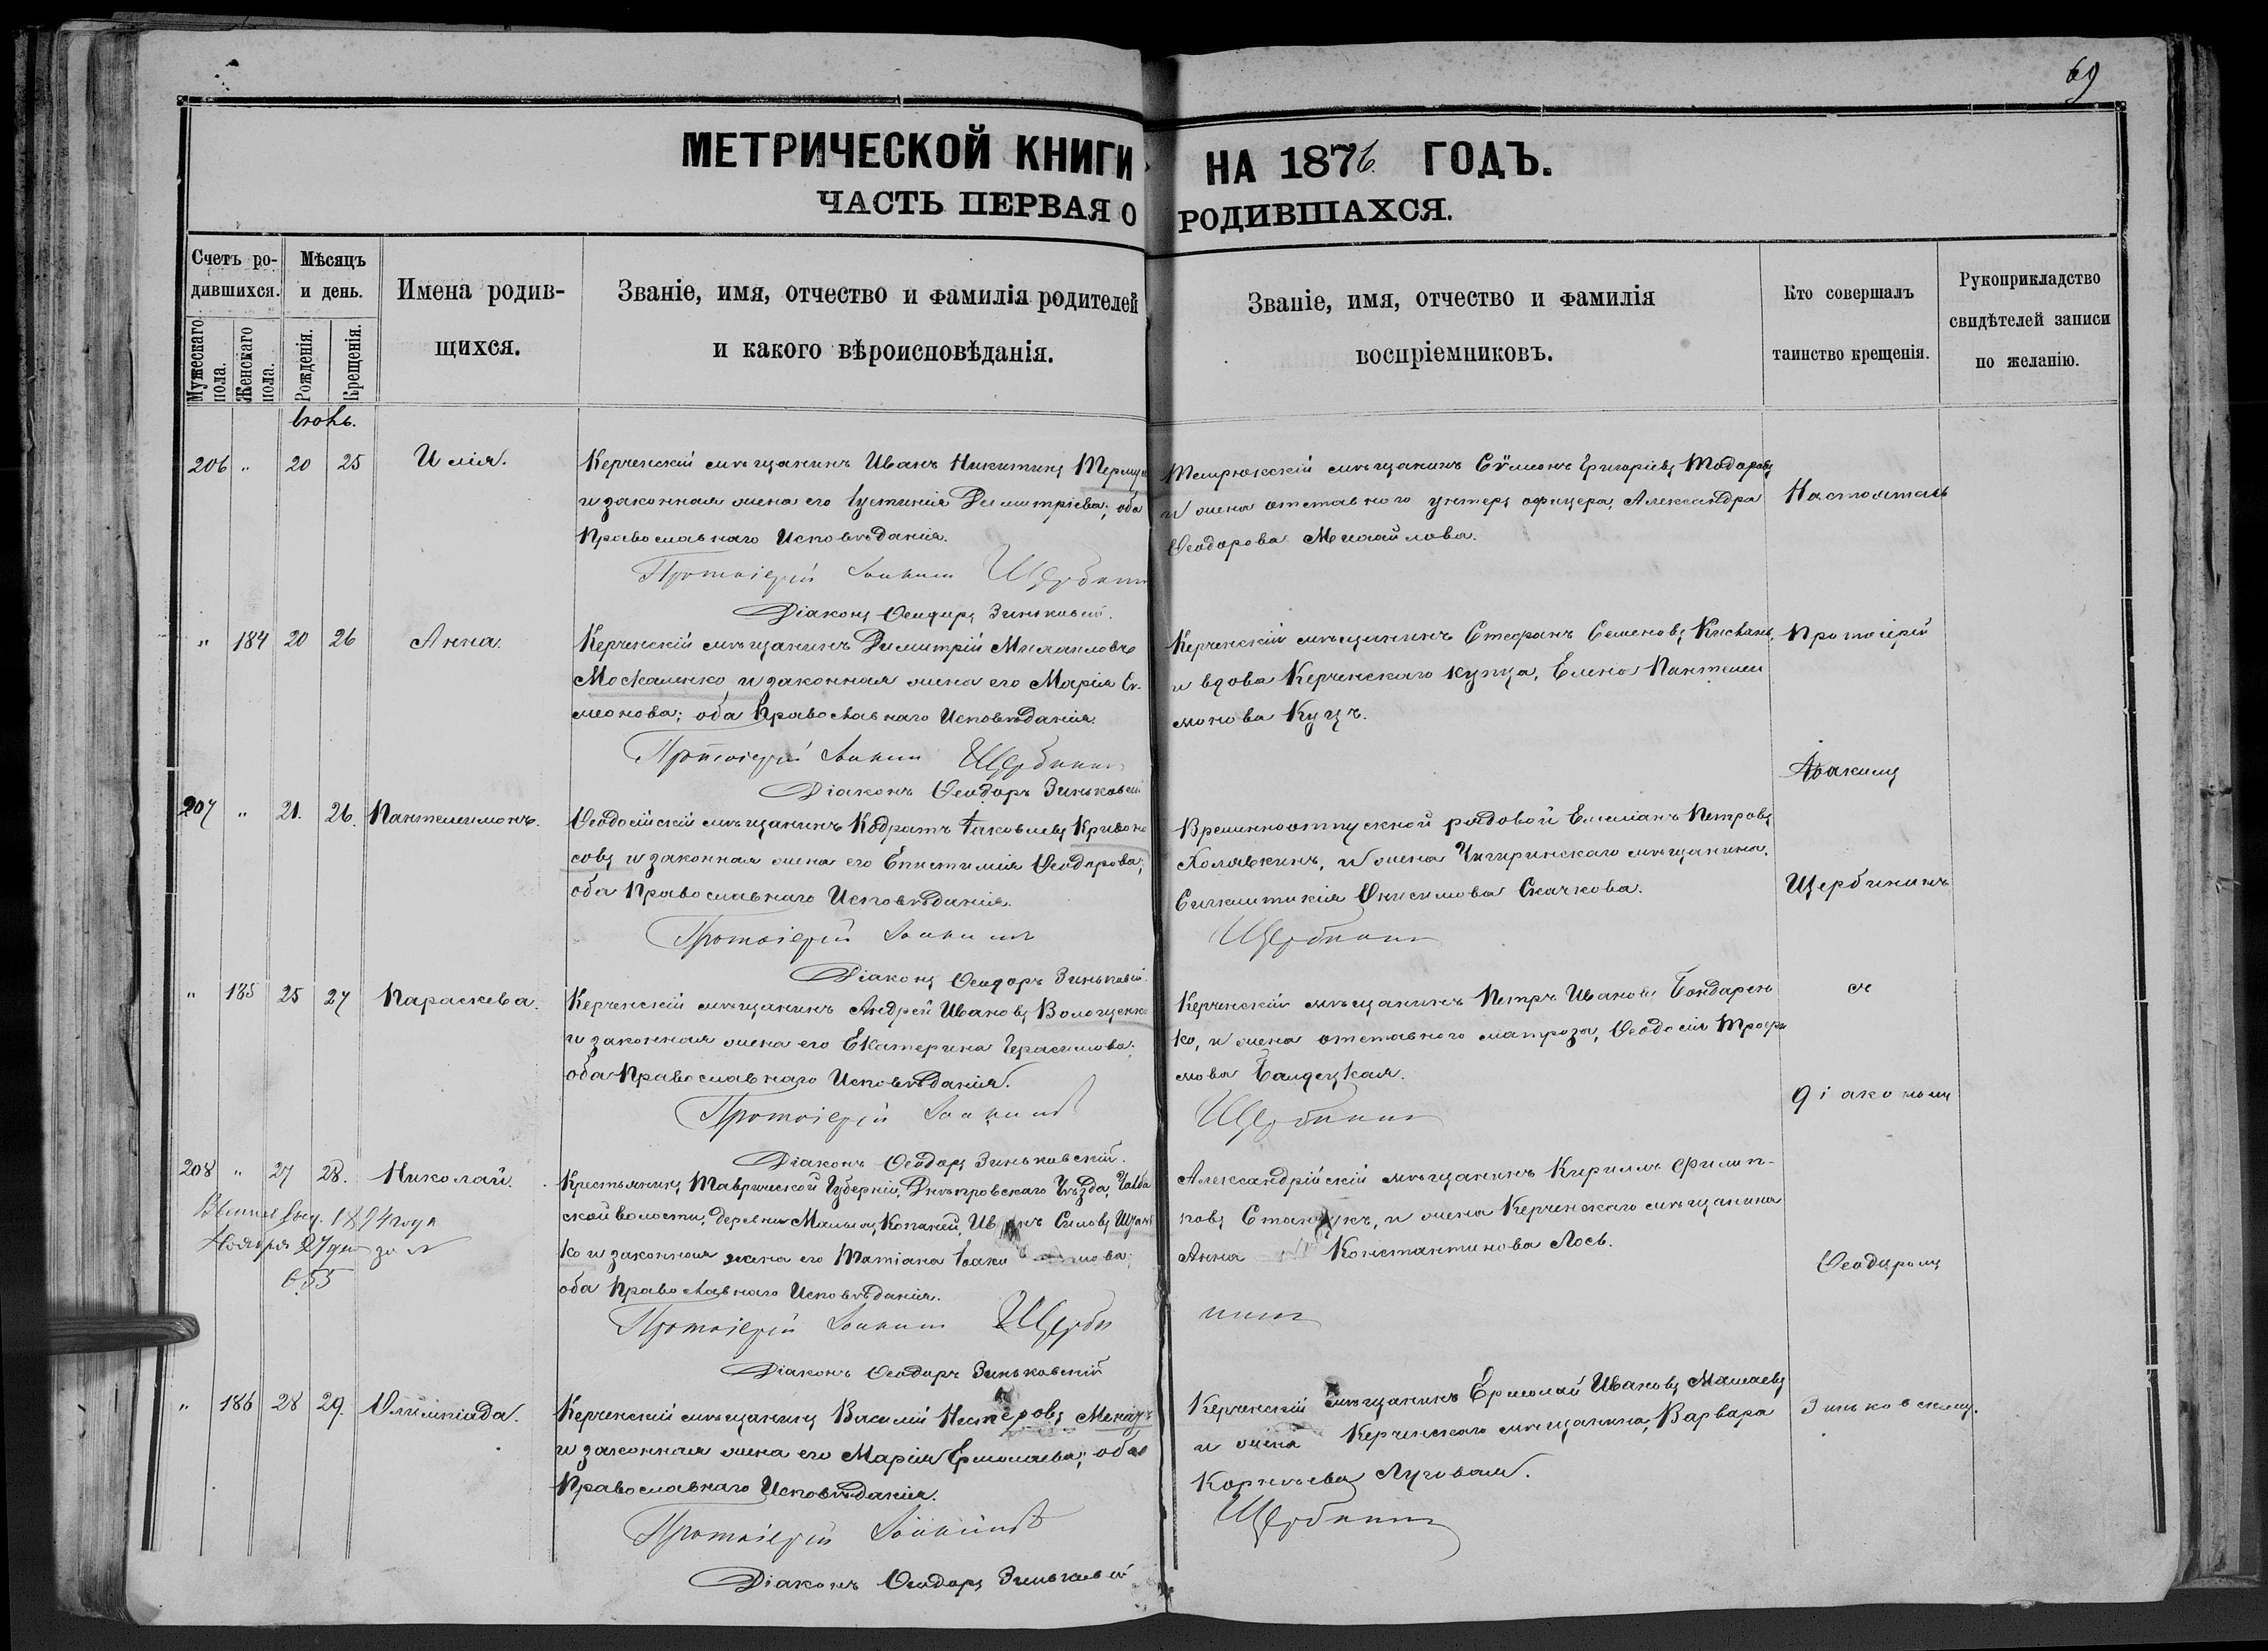 69
МЕТРИЧЕСКОЙ КНИГИ НА 1876 ГОДЪ.
ЧАСТЬ ПЕРВАЯ О РОДИВШИХСЯ.
Счетъ ро-
дившихся.
Мужескаго пола.
Женскаго пола.
Мѣсяцъ
и день.
Рожденія.
Крещенія.
Имена родив-
шихся.
Званіе, имя, отчество и фамилія родителей
и какого вѣроисповѣданія.
Званіе, имя, отчество и фамилія
воспріемниковъ.
Кто совершалъ
таинство крещенія.
Рукоприкладство
свидѣтелей записи
по желанію.
206 " 20 25 Илія.
Керченскій мѣщанинъ Иванъ Никитинъ
и законная жена его Іустинія Димитріева; оба
Православнаго Исповѣданія.
Протоіерей Іоакимъ Щербининъ
Діаконъ Ѳеодоръ Зиньковскій.
Темрюкскій мѣщанинъ Сѵмеонъ Григоріевъ Тодоровъ
и жена отставного унтеръ офицера, Александра
Ѳеодорова Михайлова.
Настоятель
" 184 20 26 Анна.
Керченскій мѣщанинъ Димитрій Михаиловъ
Москаленко и законная жена его Марія Сѵ-
меонова; оба Православнаго Исповѣданія.
Протоіерей Іоакимъ Щербининъ
Діаконъ Ѳеодоръ Зиньковскій
Керченскій мѣщанинъ Стефанъ Семеновъ
и вдова Керченскаго купца, Елена Пантелей
монова Куцъ.
Протоіерей
Іоакимъ
207 " 21. 26. Пантелеимонъ.
Ѳеодосійскій мѣщанинъ Кодратъ Іаковлевъ Криво но
совъ и законная жена его Епистимія Ѳеодорова;
оба Православнаго Исповѣданія.
Протоіерей Іоакимъ Щербининъ
Діаконъ Ѳеодоръ Зиньковскій.
Временноотпускной рядовой Емиліанъ Петровъ
Холявкинъ, и жена Чигиринскаго мѣщанина,
Онисимова Скачкова.
Щербининъ
" 185 25 27 Параскева.
Керченскій мѣщанинъ Андрей Ивановъ
и законная жена его Екатерина Герасимова;
оба Православнаго Исповѣданія.
Протоіерей Іоакимъ Щербининъ
Діаконъ Ѳеодоръ Зиньковскій.
Керченскій мѣщанинъ Петръ Ивановъ Бондарен
ко, и жена отставного матроза, Ѳеодосія Трофи
мова
съ
діакономъ
208 " 27 28. Николай.
1894 года
Ноября 27 дня за №
655
Крестьянинъ Таврической Губерніи, Днѣпровскаго Уѣзда,
ской волости, деревни Малыхъ Копаней, Иванъ Симовъ
ко и законная жена его Татіана
оба Православнаго Исповѣданія.
Протоіерей Іоакимъ Щерби нинъ
Діаконъ Ѳеодоръ Зиньковскій
Александрійскій мѣщанинъ Кириллъ Филип-
повъ и жена Керченскаго мѣщанина
Анна Константинова Лось.
Ѳеодоромъ
" 186 28 29. Олимпіада.
Керченскій мѣщанинъ Василій
и законная жена его Марія Ермолаева; оба
Православнаго Исповѣданія.
Протоіерей Іоакимъ Щербининъ
Діаконъ Ѳеодоръ Зиньковскій
Керченскій мѣщанинъ Ермолай Ивановъ
и жена Керченскаго мѣщанина, Варвара
Корнѣева Луговая.
Зиньковскимъ.